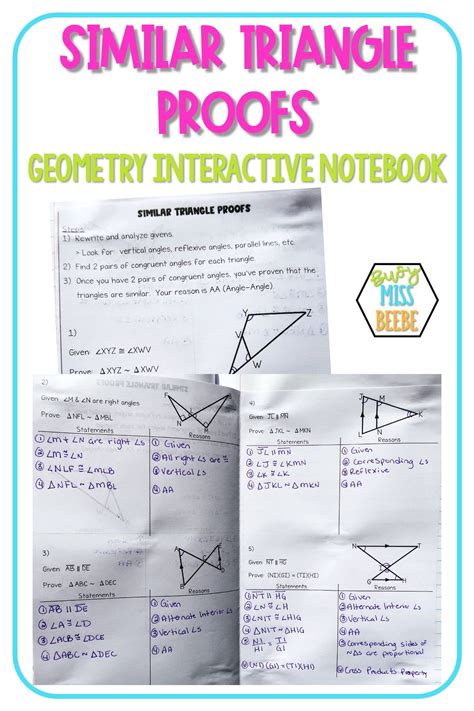 SIMILAR TRIANGLE
PROOFS
GEOMETRY INTERACTIVE NOTEBOOK
SIMILAR TRIANGLE PROOFS
Steps
1) Rewrite and analyze givens.
> Look for vertical angles, reflexive angles, parallel lines, etc.
2) Find 2 pairs of congruent angles for each triangle.
3) Once you have 2 pairs of congruent angles, you've proven that the
triangles are similar. Your reason is AA (Angle-Angle).
1)
Given: ∠XYZ ≅ ∠XWV
Y
Z
V
W
Busy
MISS
BEEBE
2)
Given: ∠M & ∠N are right angles
Prove: △NFL ~ △MBL
F
B
N
M
L
Statements
Reasons
① ∠M & ∠N are right ∠s
① Given
② ∠M ≅ ∠N
② All right ∠s ≅
③ ∠NLF ≅ ∠MLB
③ Vertical ∠s
④ △NFL ~ △MBL
④ AA
3)
Given: AB ∥ DE
Prove: △ABC ~ △DEC
Statements
Reasons
① AB ∥ DE
① Given
② ∠A ≅ ∠D
② Alternate Interior ∠s
③ ∠ACB ≅ ∠DCE
③ Vertical ∠s
④ △ABC ~ △DEC
④ AA
4)
Given: JL ∥ MN
Prove: △JKL ~ △MKN
J
M
K
L
N
Statements
Reasons
① JL ∥ MN
① Given
② ∠J ≅ ∠KMN
② Corresponding ∠s
③ ∠K ≅ ∠K
③ Reflexive
④ △JKL ~ △MKN
④ AA
5)
Given: NT ∥ HG
Prove: (NI)(GI) = (TI)(HI)
N
T
I
G
H
Statements
Reasons
① NT ∥ HG
① Given
② ∠N ≅ ∠H
② Alternate Interior ∠s
③ ∠NIT ≅ ∠HIG
③ Vertical ∠s
④ △NIT ~ △HIG
④ AA
⑤ NI/HI = TI/GI
⑤ Corresponding sides of
~△s are proportional
⑥ (NI)(GI) = (TI)(HI)
⑥ Cross Products Property